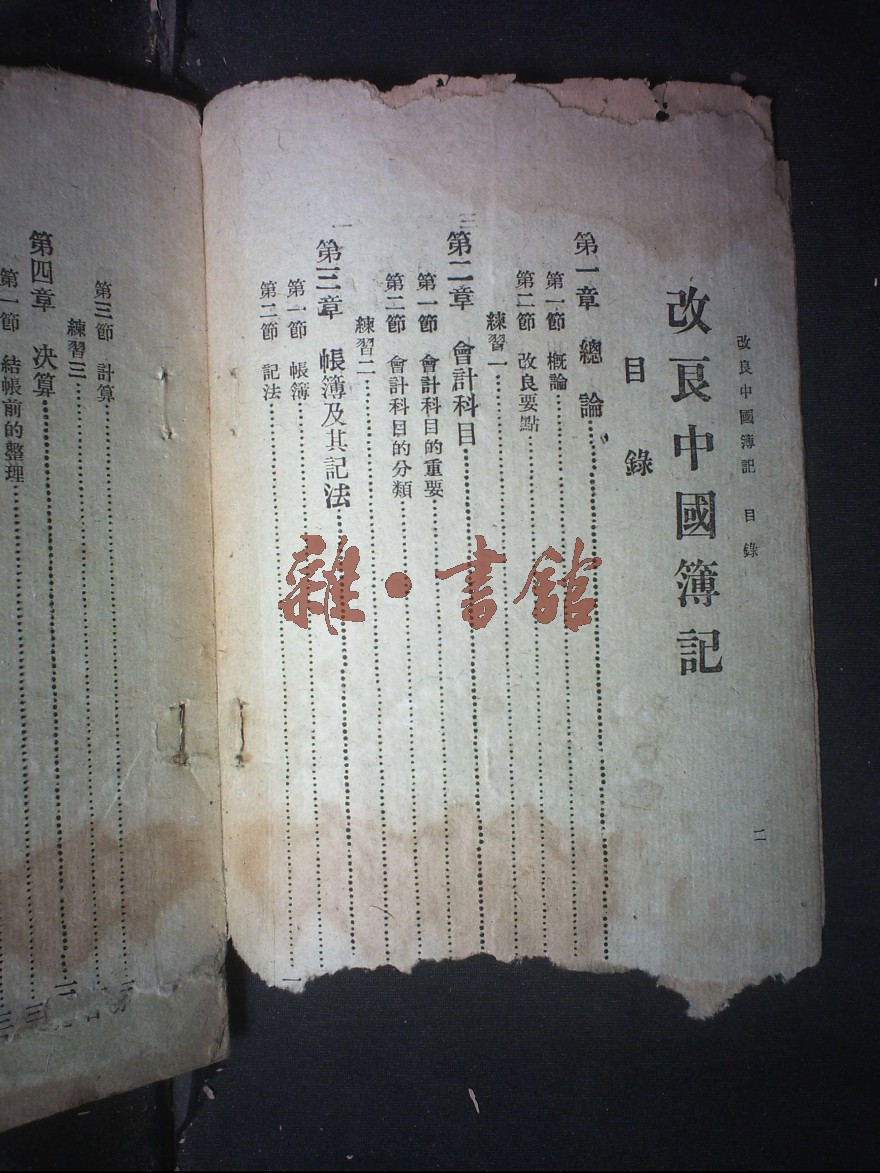 改良中國簿記　目錄
二
改良中國簿記
目錄
第一章　總論
第一節　概論
第二節　改良要點
練習一
第二章　會計科目
第一節　會計科目的重要
第二節　會計科目的分類
練習二
第三章　帳簿及其記法
第一節　帳簿
第二節　記法
第三節　計算
練習三
第四章　決算
第一節　結帳前的整理
雜·書館